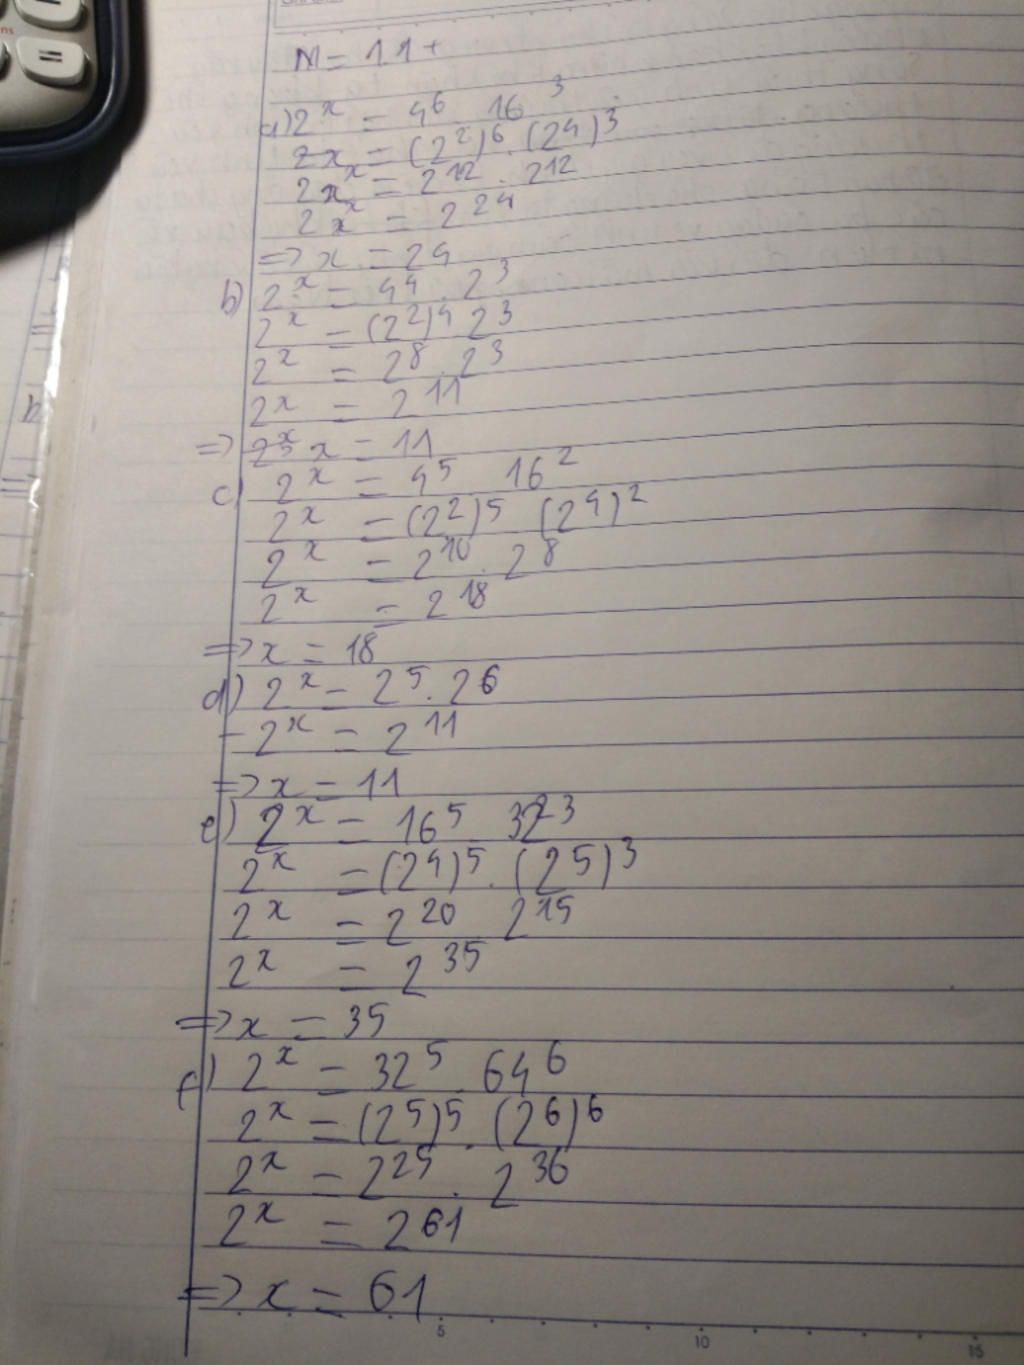 M = 1.1 +
a) 2^x = 4^6 . 16^3
2x^x = (2^2)^6 . (2^4)^3
2x^x = 2^12 . 2^12
2x^x = 2^24
=> x = 24
b) 2^x = 4^4 . 2^3
2^x = (2^2)^4 2^3
2^x = 2^8 . 2^3
2^x = 2^11
=> x = 11
c) 2^x = 4^5 16^2
2^x = (2^2)^5 (2^4)^2
2^x = 2^10 . 2^8
2^x = 2^18
=> x = 18
d) 2^x = 2^5 . 2^6
- 2^x = 2^11
=> x = 11
e) 2^x = 16^5 . 32^3
2^x = (2^4)^5 . (2^5)^3
2^x = 2^20 . 2^15
2^x = 2^35
=> x = 35
f) 2^x = 32^5 . 64^6
2^x = (2^5)^5 . (2^6)^6
2^x = 2^25 . 2^36
2^x = 2^61
=> x = 61
5 10 15